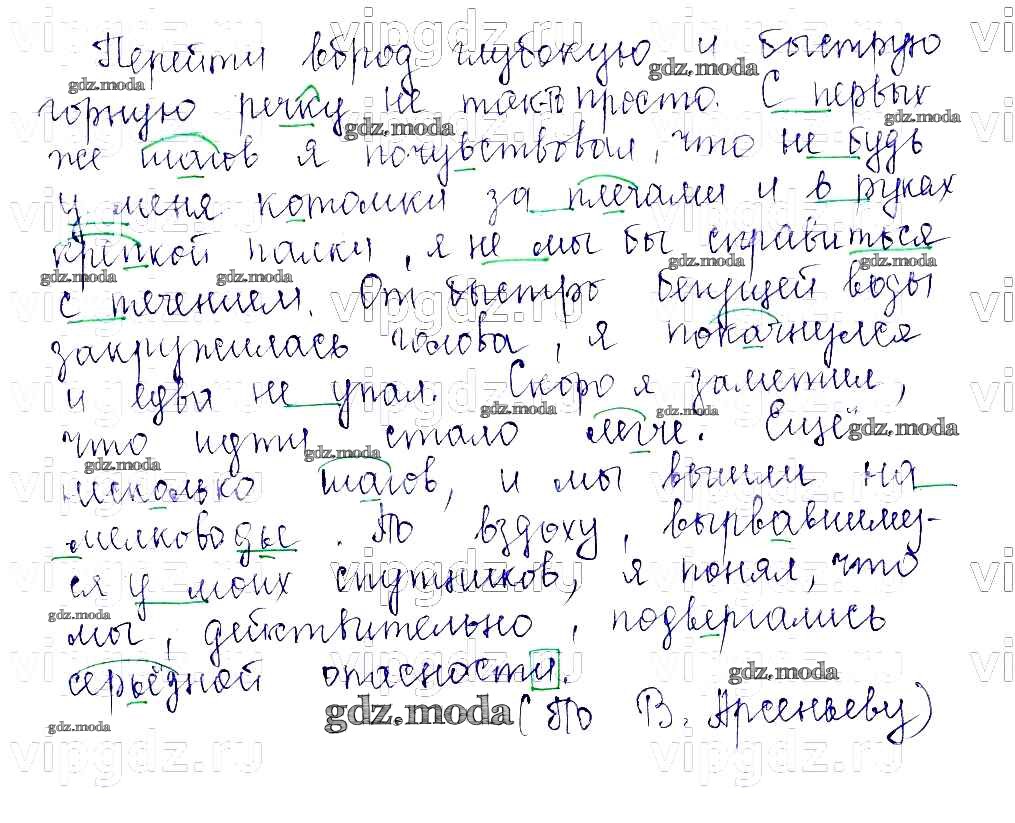 Перейти вброд глубокую и быструю
горную речку не так-то просто. С первых
же шагов я почувствовал, что не будь
у меня котомки за плечами и в руках
крепкой палки, я не мы бы справиться
с течением. От быстро бегущей воды
закружилась голова, я покачнулся
и едва не упал. Скоро я заметил,
что идти стало легче. Ещё
несколько шагов, и мы вышли на
мелководье. По вздоху, вырвавшему-
ся у моих спутников, я понял, что
мы, действительно, подвергались
серьёзной опасности.
(По В. Арсеньеву)